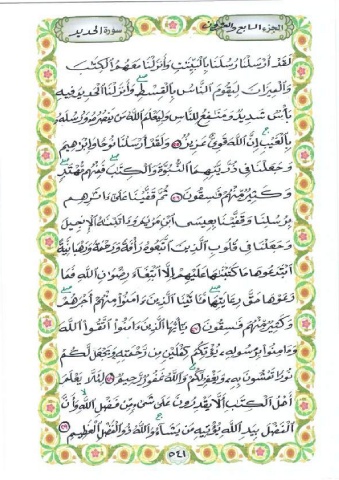 الجزء السابع والعشرون
سورة الحديد
لَقَدْ أَرْسَلْنَا رُسُلَنَا بِالْبَيِّنَٰتِ وَأَنزَلْنَا مَعَهُمُ الْكِتَٰبَ
وَالْمِيزَانَ لِيَقُومَ النَّاسُ بِالْقِسْطِ وَأَنزَلْنَا الْحَدِيدَ فِيهِ
بَأْسٌ شَدِيدٌ وَمَنَٰفِعُ لِلنَّاسِ وَلِيَعْلَمَ اللَّهُ مَن يَنصُرُهُ وَرُسُلَهُ
بِالْغَيْبِ إِنَّ اللَّهَ قَوِيٌّ عَزِيزٌ ٢٥ وَلَقَدْ أَرْسَلْنَا نُوحًا وَإِبْرَٰهِيمَ
وَجَعَلْنَا فِي ذُرِّيَّتِهِمَا النُّبُوَّةَ وَالْكِتَٰبَ فَمِنْهُم مُّهْتَدٍ
وَكَثِيرٌ مِّنْهُمْ فَٰسِقُونَ ٢٦ ثُمَّ قَفَّيْنَا عَلَىٰ ءَاثَٰرِهِم
بِرُسُلِنَا وَقَفَّيْنَا بِعِيسَى ابْنِ مَرْيَمَ وَءَاتَيْنَٰهُ الْإِنجِيلَ
وَجَعَلْنَا فِي قُلُوبِ الَّذِينَ اتَّبَعُوهُ رَأْفَةً وَرَحْمَةً وَرَهْبَانِيَّةً
ابْتَدَعُوهَا مَا كَتَبْنَٰهَا عَلَيْهِمْ إِلَّا ابْتِغَاءَ رِضْوَٰنِ اللَّهِ فَمَا
رَعَوْهَا حَقَّ رِعَايَتِهَا فَـَٔاتَيْنَا الَّذِينَ ءَامَنُوا مِنْهُمْ أَجْرَهُمْ
وَكَثِيرٌ مِّنْهُمْ فَٰسِقُونَ ٢٧ يَٰأَيُّهَا الَّذِينَ ءَامَنُوا اتَّقُوا اللَّهَ
وَءَامِنُوا بِرَسُولِهِ يُؤْتِكُمْ كِفْلَيْنِ مِن رَّحْمَتِهِ وَيَجْعَل لَّكُمْ
نُورًا تَمْشُونَ بِهِ وَيَغْفِرْ لَكُمْ وَاللَّهُ غَفُورٌ رَّحِيمٌ ٢٨ لِّئَلَّا يَعْلَمَ
أَهْلُ الْكِتَٰبِ أَلَّا يَقْدِرُونَ عَلَىٰ شَيْءٍ مِّن فَضْلِ اللَّهِ وَأَنَّ
الْفَضْلَ بِيَدِ اللَّهِ يُؤْتِيهِ مَن يَشَاءُ وَاللَّهُ ذُو الْفَضْلِ الْعَظِيمِ ٢٩
٥٤١